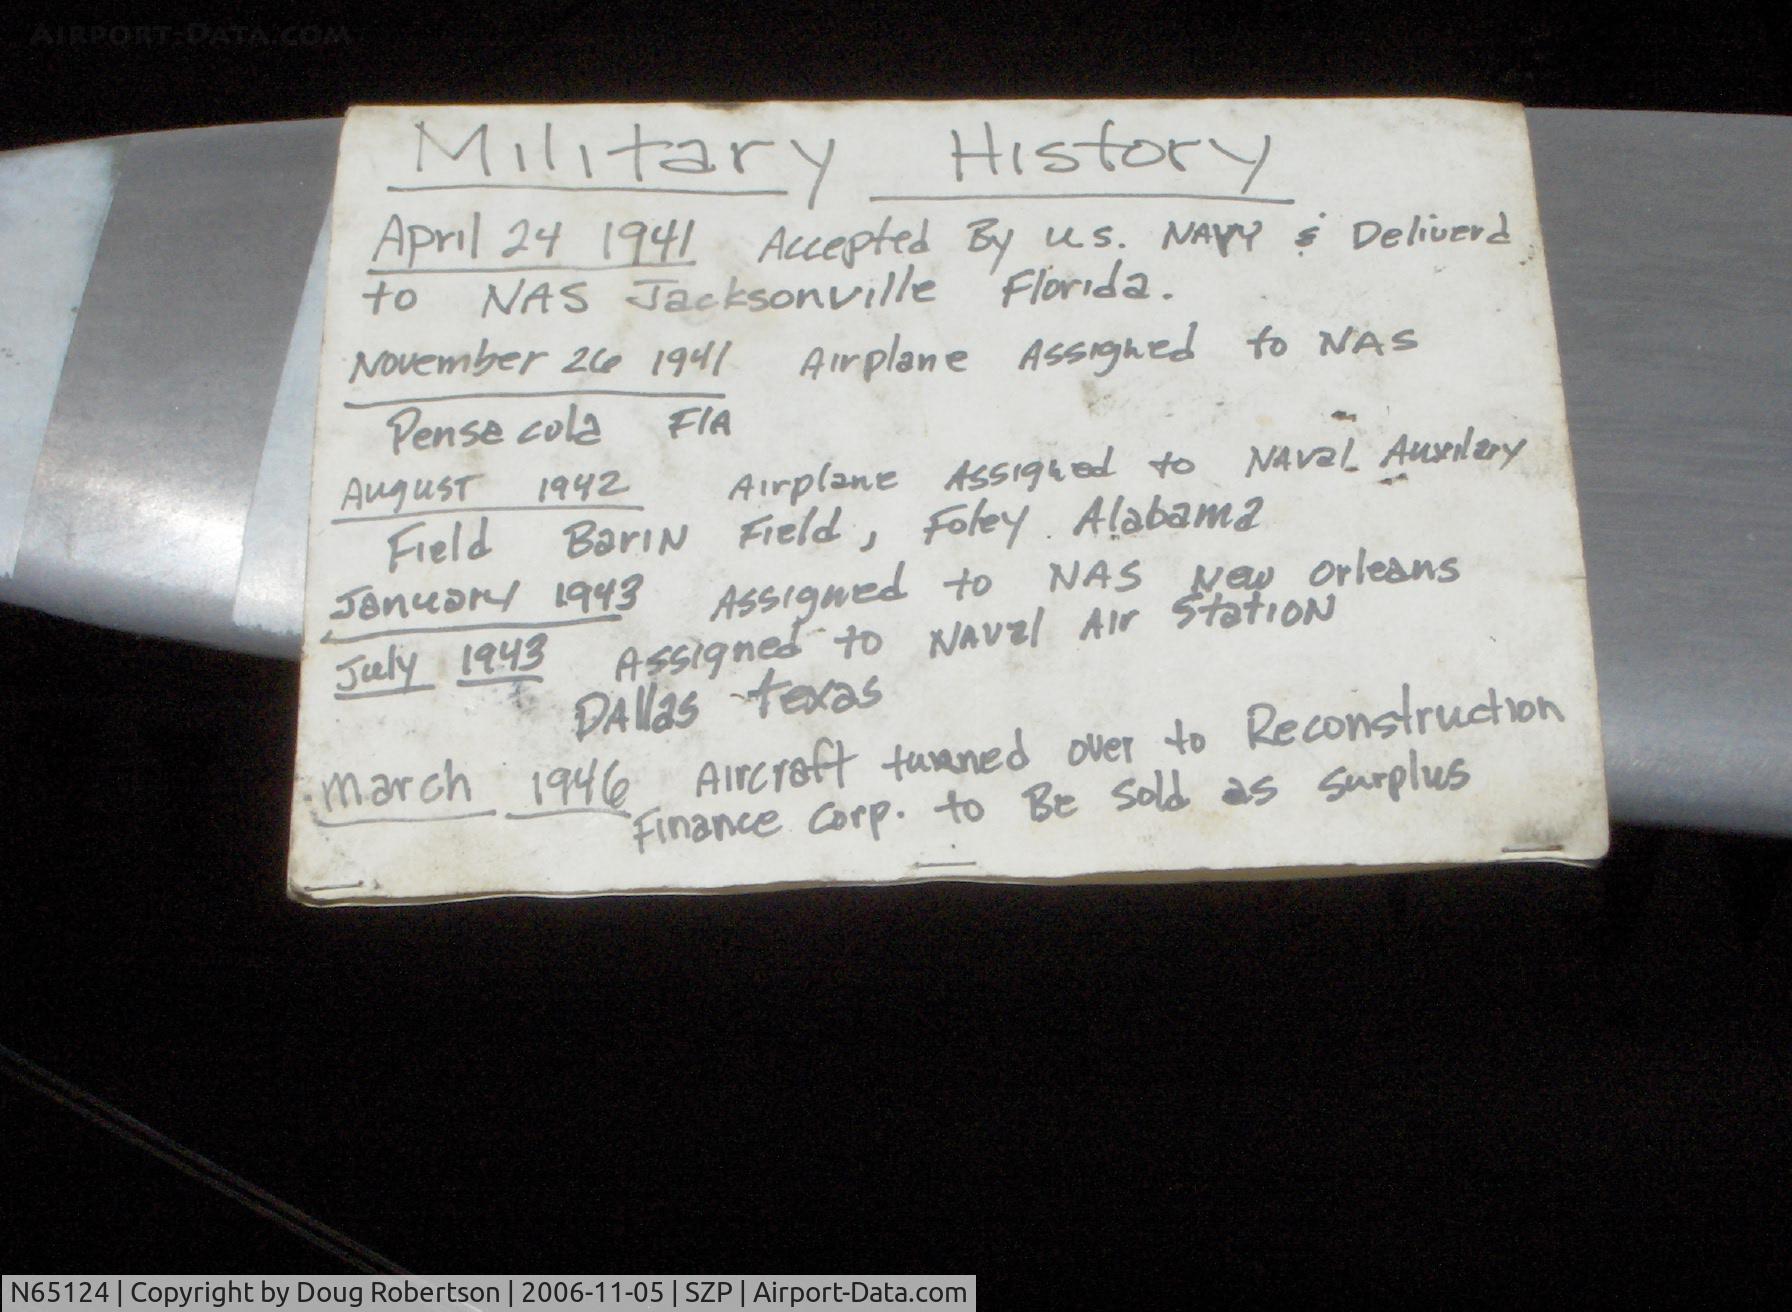 AIRPORT-DATA.COM
Military History
April 24 1941 Accepted By U.S. NAVY & Deliverd
to NAS Jacksonville Florida.
November 26 1941 Airplane Assigned to NAS
Pensecola FlA
August 1942 Airplane Assigned to NAVal Auxilary
Field Barin Field, Foley Alabama
January 1943 Assigned to NAS New Orleans
July 1943 Assigned to NAVal Air Station
DAllas Texas
March 1946 Aircraft turned over to Reconstruction
Finance Corp. to Be Sold as Surplus
N65124 | Copyright by Doug Robertson | 2006-11-05 | SZP | Airport-Data.com